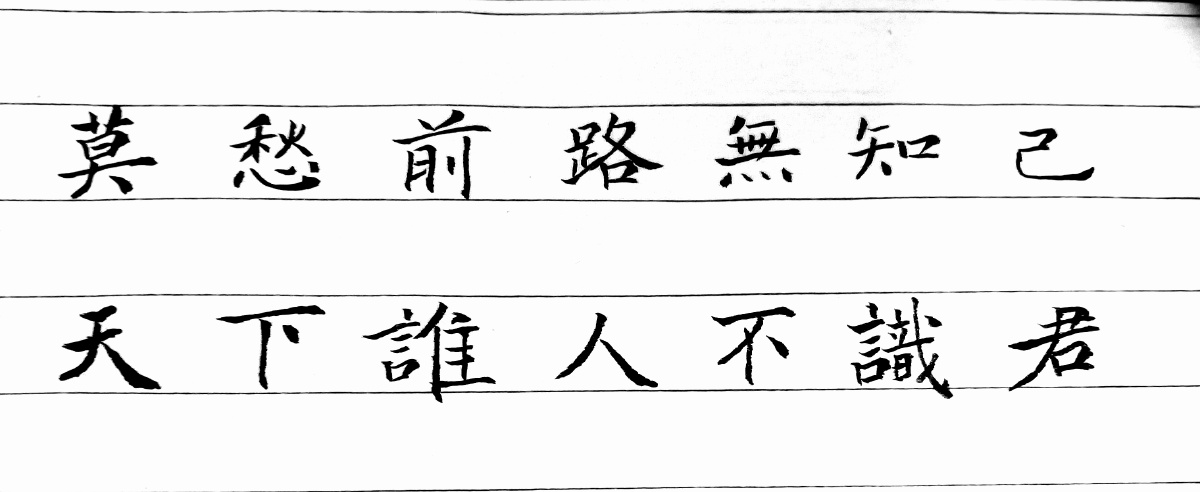 莫愁前路無知己
天下誰人不識君